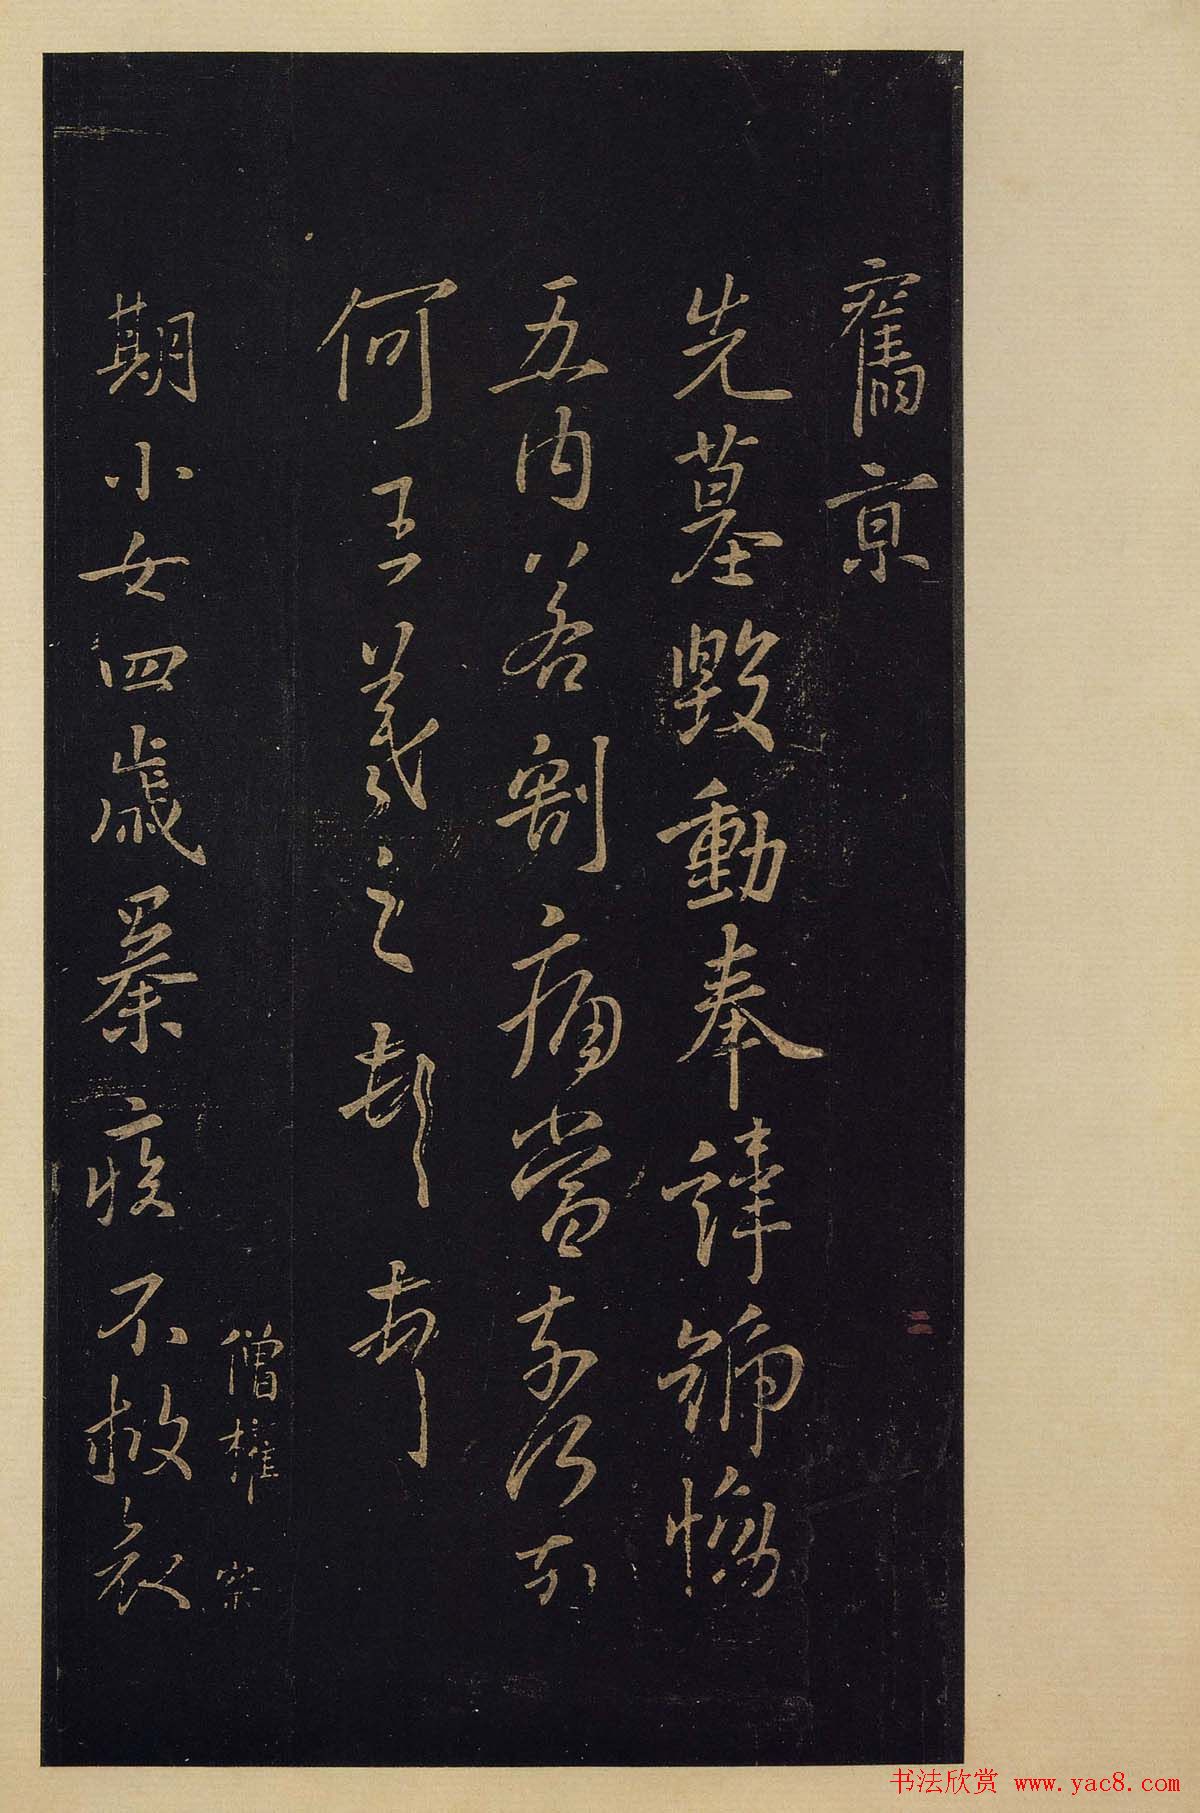 舊京
先墓毀動奉諱號慟
五内若割痛當奈何奈
何王羲之頓首
僧權
察
期小女四歲暴疾不救哀
书法欣赏 www.yac8.com